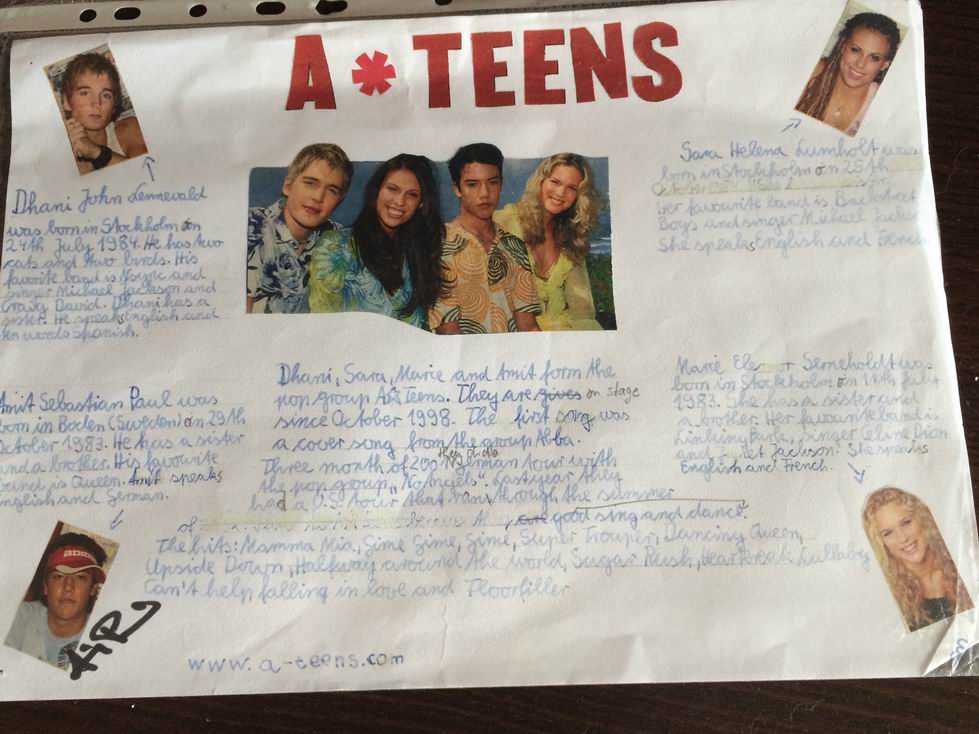 A*TEENS
Dhani John Lennevald
was born in Stockholm on
24th July 1984. He has two
cats and two birds. His
favorite band is Nsync and
singer Michael Jackson and
Craig David. Dhani has a
sister. He speaks English and
ten words Spanish.
Sara Helena Lumholt was
born in Stockholm on 25th
October
Her favourite band is Backstreet
Boys and singer Michael Jackson
She speaks English and French.
Dhani, Sara, Marie and Amit form the
pop group A*Teens. They are gives on stage
since October 1998. The first song was
a cover song from the group Abba.
Three month of 200 they did a German tour with
the pop group "No Angels". Last year they
had a U.S. tour that rans through the summer
of good sing and dance.
The hits: Mamma Mia, Gime Gime, Gime, Super Trouper, Dancing Queen,
Upside Down, Halfway around the world, Sugar Rush, Heartbreak Lullaby
Can't help falling in love and Floorfiller
Amit Sebastian Paul was
born in Boden (Sweden) on 29th
October 1983. He has a sister
and a brother. His favourite
band is Queen. Amit speaks
english and German.
Marie Eleonor Serneholdt was
born in Stockholm on 11th July
1983. She has a sister and
a brother. Her favourite band is
Linking Park, singer Celine Dion
and Janet Jackson. She speaks
English and French.
www.a-teens.com